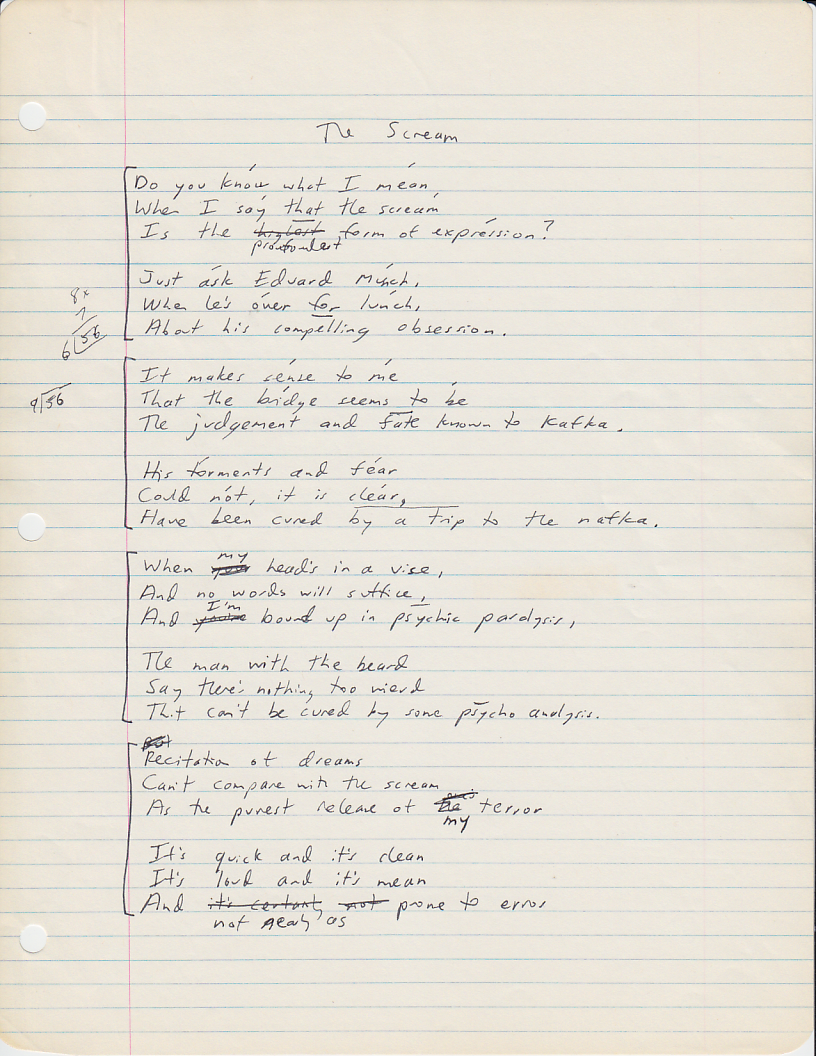 The Scream
Do you know what I mean,
When I say that the scream
Is the highest form of expression?
profoundest
Just ask Edvard Munch,
When he's over for lunch,
About his compelling obsession.
8x
7
6 56
It makes sense to me
That the bridge seems to be
9 56
The judgement and fate known to Kafka.
His torments and fear
Could not, it is clear,
Have been cured by a trip to the nafka.
my
When your head's in a vise,
And no words will suffice,
I'm
And you're bound up in psychic paralysis,
The man with the beard
Say there's nothing too wierd
That can't be cured by some psycho analysis.
Recitation of dreams
Can't compare with the scream
As the purest release of the terror
my
It's quick and it's clean
It's loud and it's mean
And it's certainly not prone to error
not nearly as